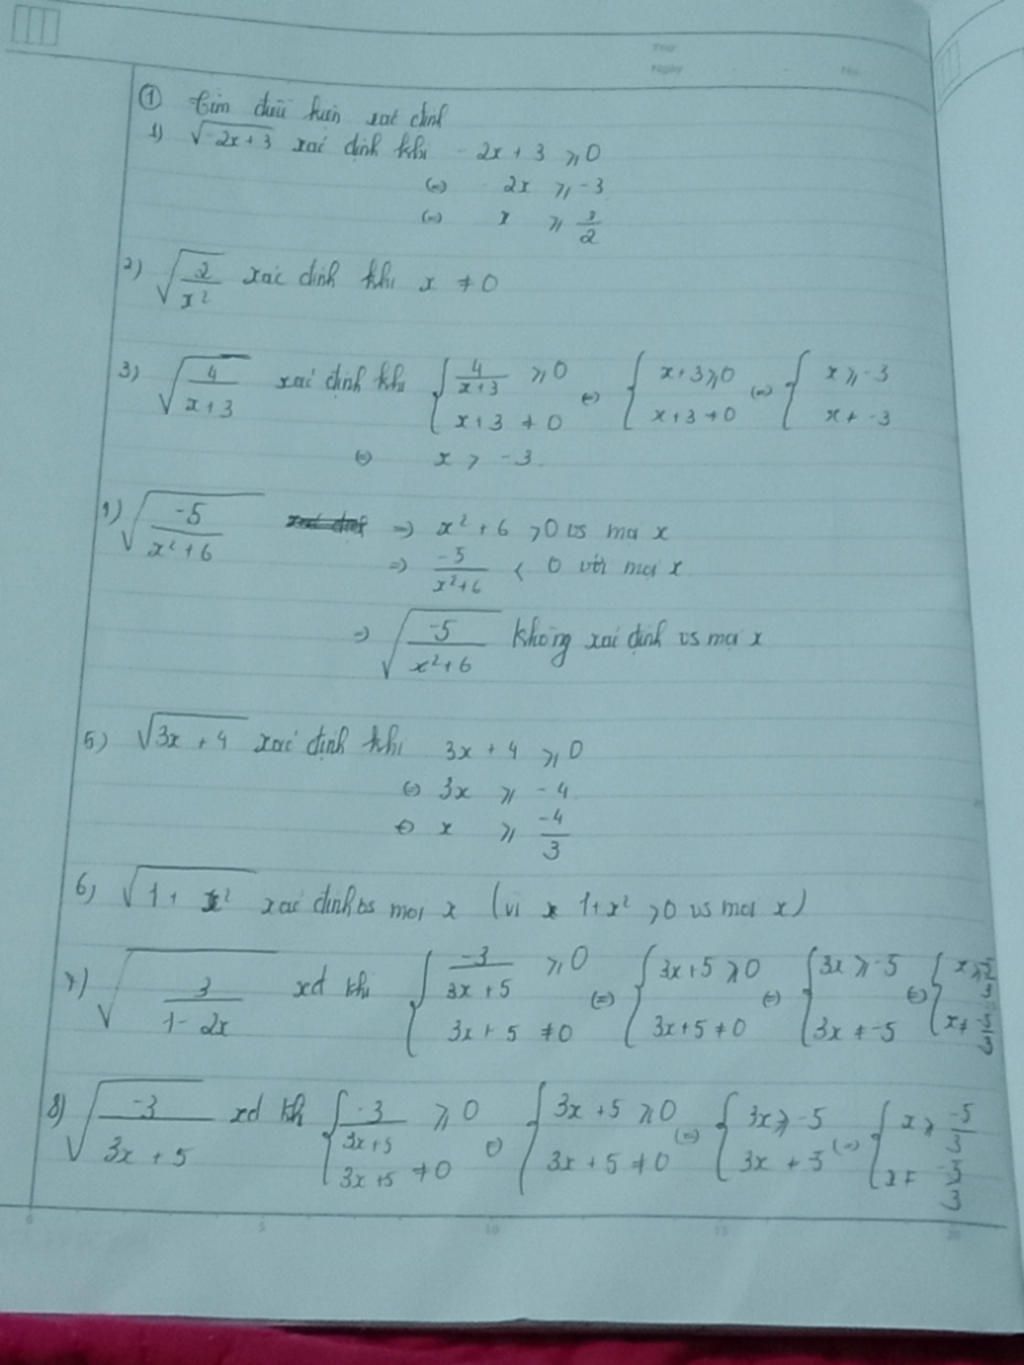 ① tìm điều kiện xác định
1) √-2x+3 xác định khi -2x + 3 ⩾ 0
(=) 2x ⩾ -3
(=) x ⩾ 3/2
2) √2/x² xác định khi x ≠ 0
3) √4/x+3 xác định khi { 4/x+3 ⩾ 0 ; x+3 ≠ 0 (=) { x+3 ⩾ 0 ; x+3 ≠ 0 (=) { x ⩾ -3 ; x ≠ -3
(=) x > -3.
√-5/x²+6 => x² + 6 > 0 vs mọi x
=> -5/x²+6 < 0 với mọi x
=> √-5/x²+6 không xác định vs mọi x
5) √3x + 4 xác định khi 3x + 4 ⩾ 0
(=) 3x ⩾ -4
(=) x ⩾ -4/3
6) √1 + x² xác định vs mọi x (vì 1+x² > 0 vs mọi x)
7) √3/1-2x xđ khi { -3/3x+5 ⩾ 0 ; 3x+5 ≠ 0 (=) { 3x+5 ⩾ 0 ; 3x+5 ≠ 0 (=) { 3x ⩾ -5 ; 3x ≠ -5 (=) { x ⩾ ; x ≠
8) √-3/3x+5 xđ kh { -3/3x+5 ⩾ 0 ; 3x+5 ≠ 0 (=) { 3x+5 ⩾ 0 ; 3x+5 ≠ 0 (=) { 3x ⩾ -5 ; 3x ≠ 5 (=) { x ⩾ -5/3 ; x ≠